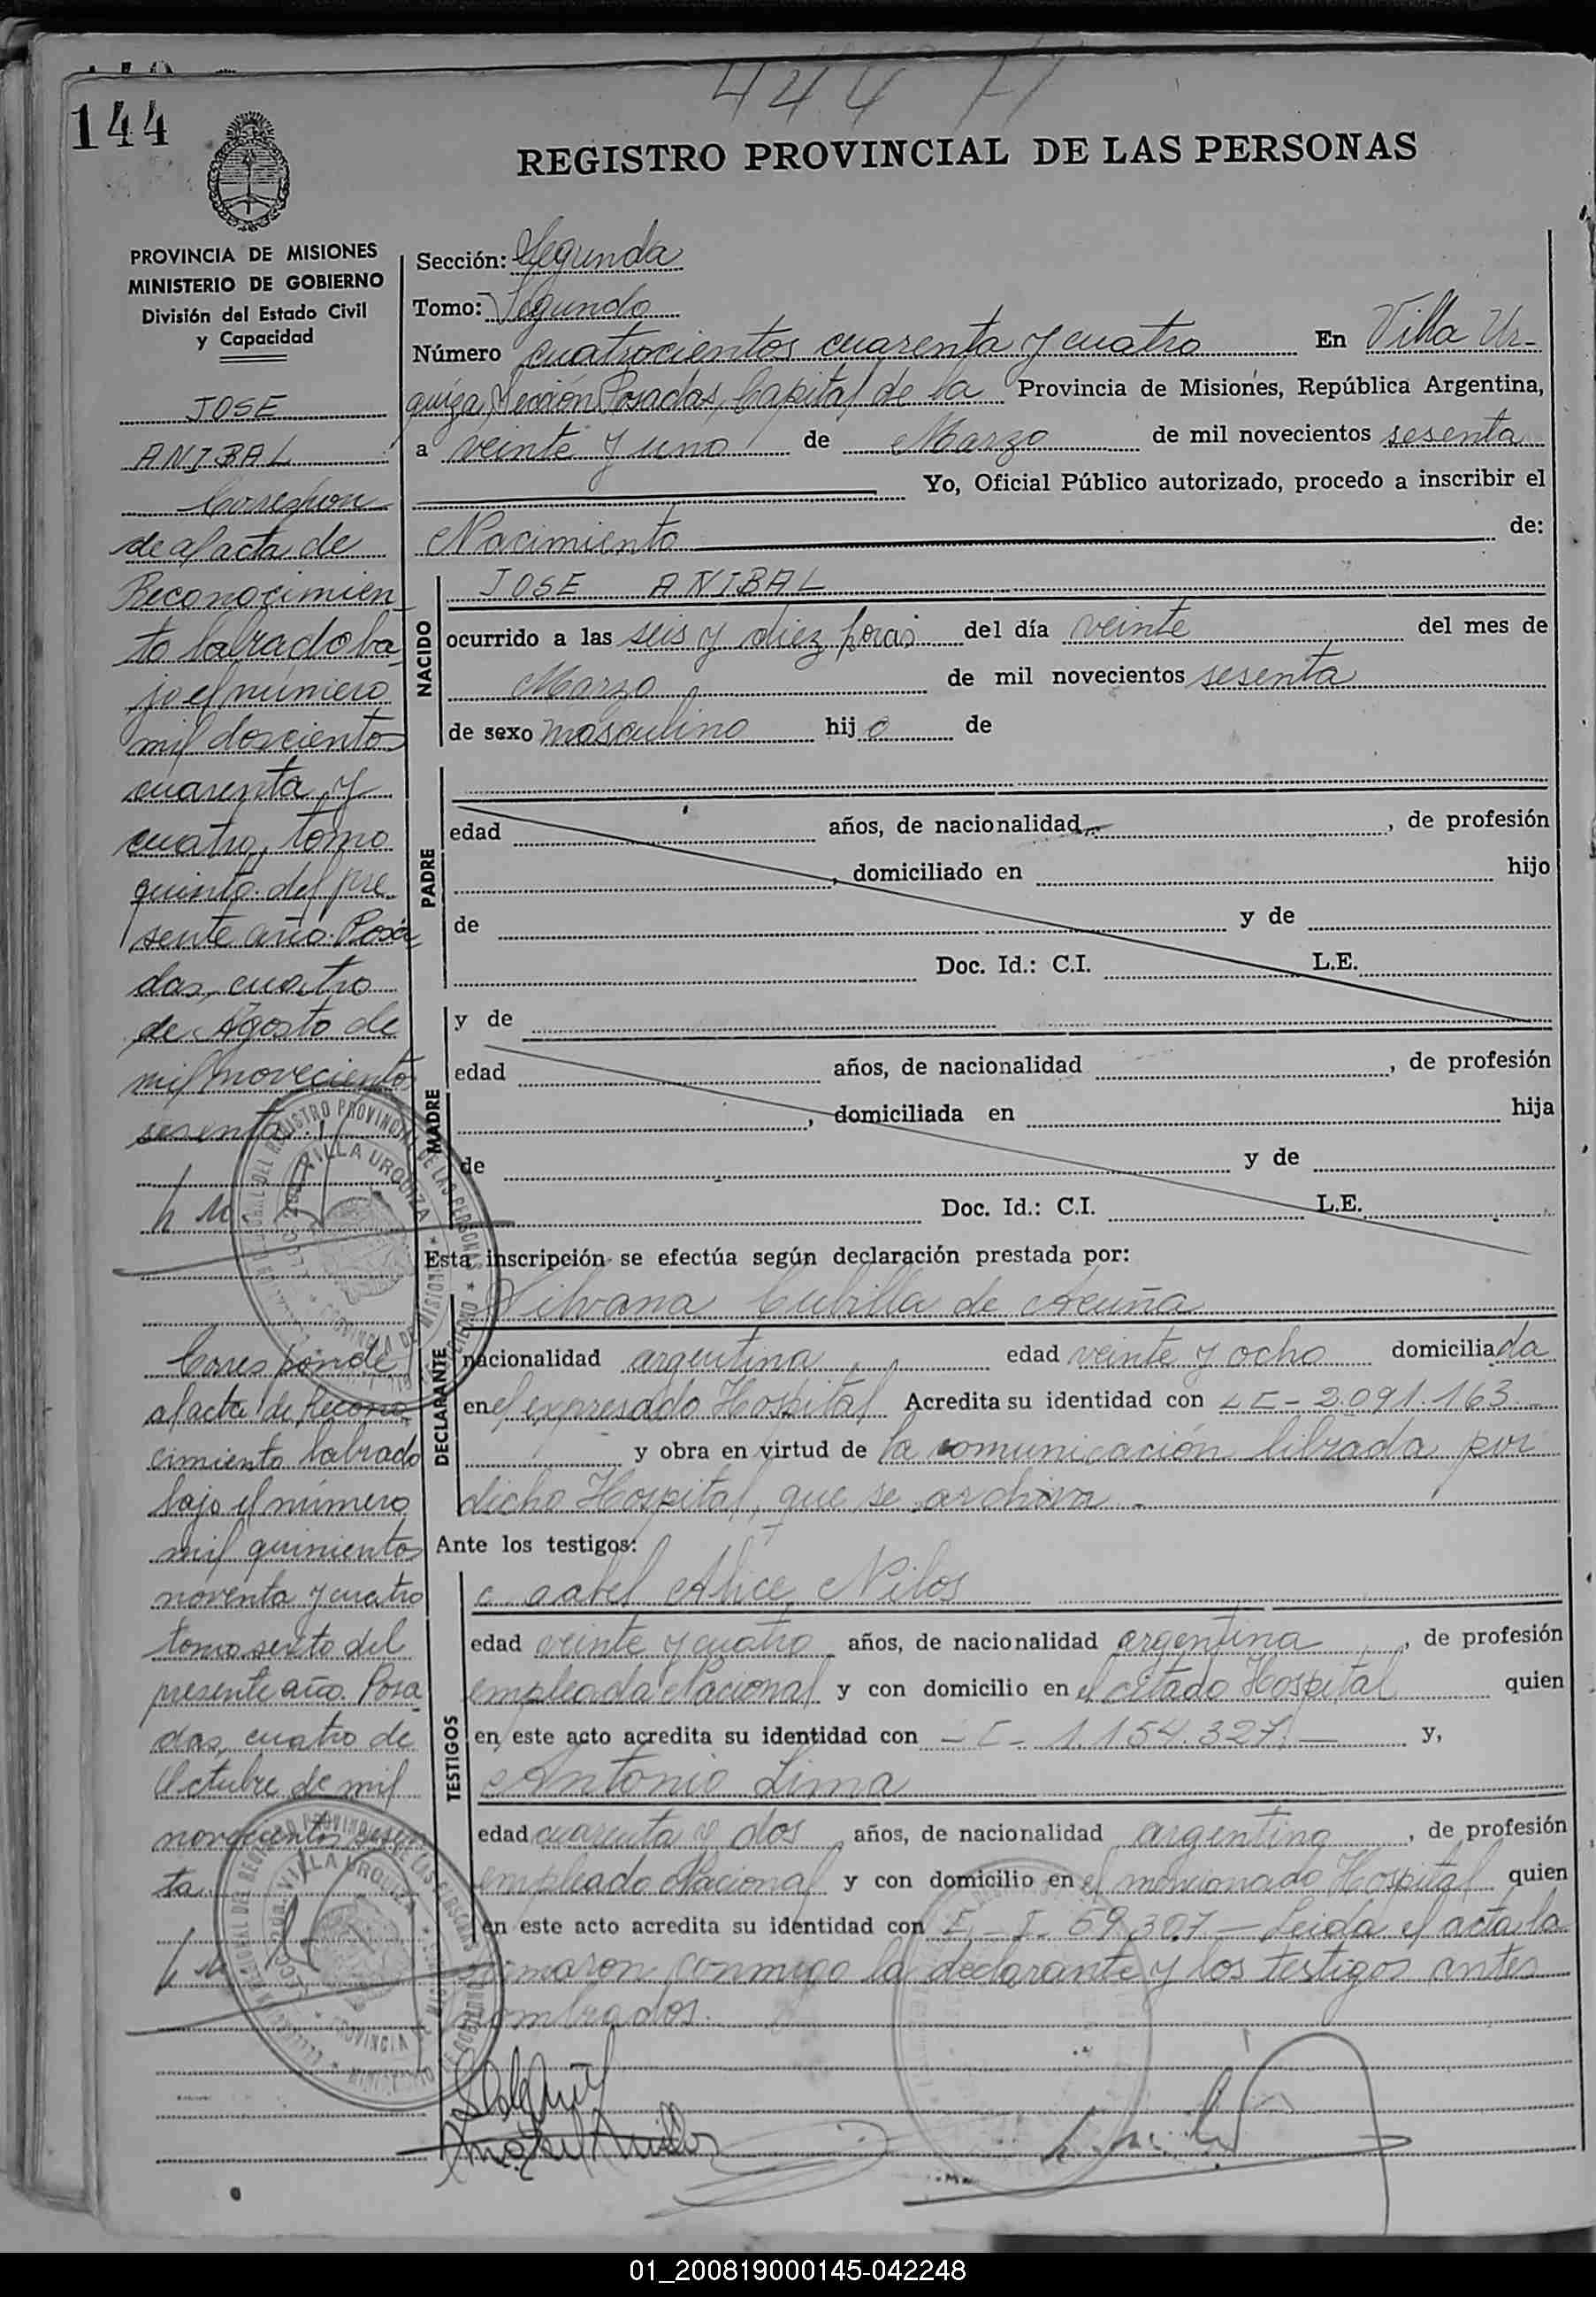 444
144
REGISTRO PROVINCIAL DE LAS PERSONAS
PROVINCIA DE MISIONES
MINISTERIO DE GOBIERNO
División del Estado Civil
y Capacidad
JOSE
ANIBAL
Correspon
de al acta de
Reconocimien
to labrado ba
jo el número
mil doscientos
cuarenta y
cuatro, tomo
quinto del pre
sente año. Posa
das, cuatro
de Agosto de
mil novecientos
sesenta.
Corresponde
al acta de Recono
cimiento labrado
bajo el número
mil quinientos
noventa y cuatro
tomo sexto del
presente año. Posa
das, cuatro de
Octubre de mil
novecientos sesen
ta.
Sección: Segunda
Tomo: Segundo
Número cuatrocientos cuarenta y cuatro En Villa Ur-
quiza, Sección Posadas, Capital de la Provincia de Misiones, República Argentina,
a veinte y uno de Marzo de mil novecientos sesenta
Yo, Oficial Público autorizado, procedo a inscribir el
Nacimiento de:
NACIDO
JOSE ANIBAL
ocurrido a las seis y diez horas del día veinte del mes de
Marzo de mil novecientos sesenta
de sexo masculino hijo de
PADRE
edad años, de nacionalidad , de profesión
, domiciliado en hijo
de y de
Doc. Id.: C.I. L.E.
MADRE
y de
edad años, de nacionalidad , de profesión
, domiciliada en hija
de y de
Doc. Id.: C.I. L.E.
Esta inscripción se efectúa según declaración prestada por:
DECLARANTE
Silvana Cubilla de Acuña
nacionalidad argentina edad veinte y ocho domiciliada
en el expresado Hospital Acredita su identidad con 2.091.163
y obra en virtud de la comunicación librada por
dicho Hospital, que se archiva.
Ante los testigos:
TESTIGOS
Alice Nilos
edad veinte y cuatro años, de nacionalidad argentina, de profesión
empleada Nacional y con domicilio en el citado Hospital quien
en este acto acredita su identidad con 1.154.327. y,
Antonio Lima
edad cuarenta y dos años, de nacionalidad argentino, de profesión
empleado Nacional y con domicilio en el mencionado Hospital quien
en este acto acredita su identidad con 59.307 - Leida el acta la
firmaron conmigo la declarante y los testigos antes
nombrados.
VILLA URQUIZA
VILLA URQUIZA
01_200819000145-042248